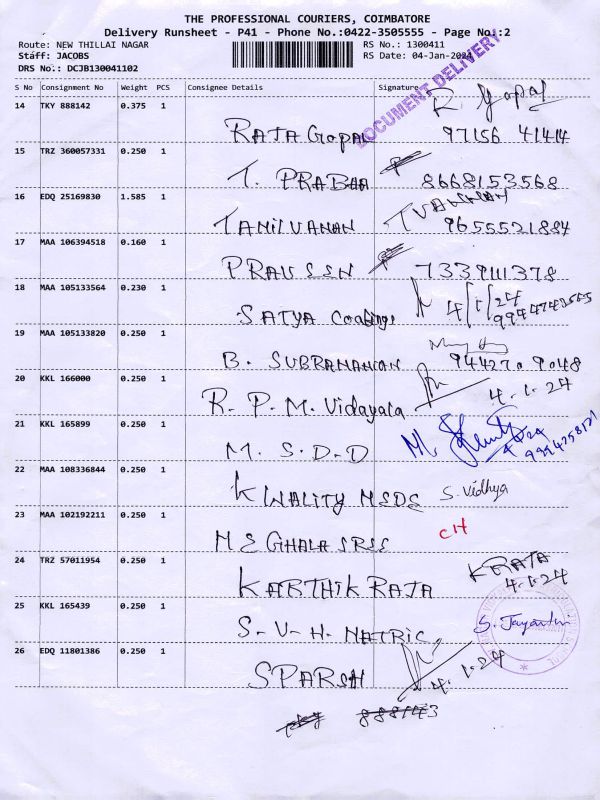 THE PROFESSIONAL COURIERS, COIMBATORE
Delivery Runsheet - P41 - Phone No.:0422-3505555 - Page No.:2
Route: NEW THILLAI NAGAR RS No.: 1300411
Staff: JACOBS RS Date: 04-Jan-2024
DRS No.: DCJB130041102
DOCUMENT DELIVERY
S No Consignment No Weight PCS Consignee Details Signature
14 TKY 888142 0.375 1 RAJA GOPAL R. Gopal
97156 41414
15 TRZ 360057331 0.250 1 T. PRABHA 8668153568
16 EDQ 25169830 1.585 1 TAMILVANAN
9655521884
17 MAA 106394518 0.160 1 PRAVEEN 7339111378
18 MAA 105133564 0.230 1 SATYA Coatings 4/1/24
19 MAA 105133820 0.250 1 B. SUBRAMANIAN 94427 0 9048
20 KKL 166000 0.250 1 R. P. M. Vidayala 4.1.24
21 KKL 165899 0.250 1 M. S. D. D
22 MAA 108336844 0.250 1 KWALITY MEDS S. Vidhya
23 MAA 102192211 0.250 1 MEGHALA SREE CH
24 TRZ 57011954 0.250 1 KARTHIK RAJA K RAJA
4.1.24
25 KKL 165439 0.250 1 S. V. H. MATRIC, S. Jayanthi
26 EDQ 11801386 0.250 1 SPARSH 4.1.24
888143